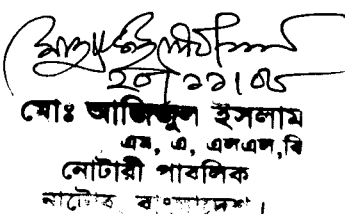 ২০/১১/০৮
মোঃ আজিজুল ইসলাম
এম, এ, এলএল,বি
নোটারী পাবলিক
নাটোর বাংলাদেশ।